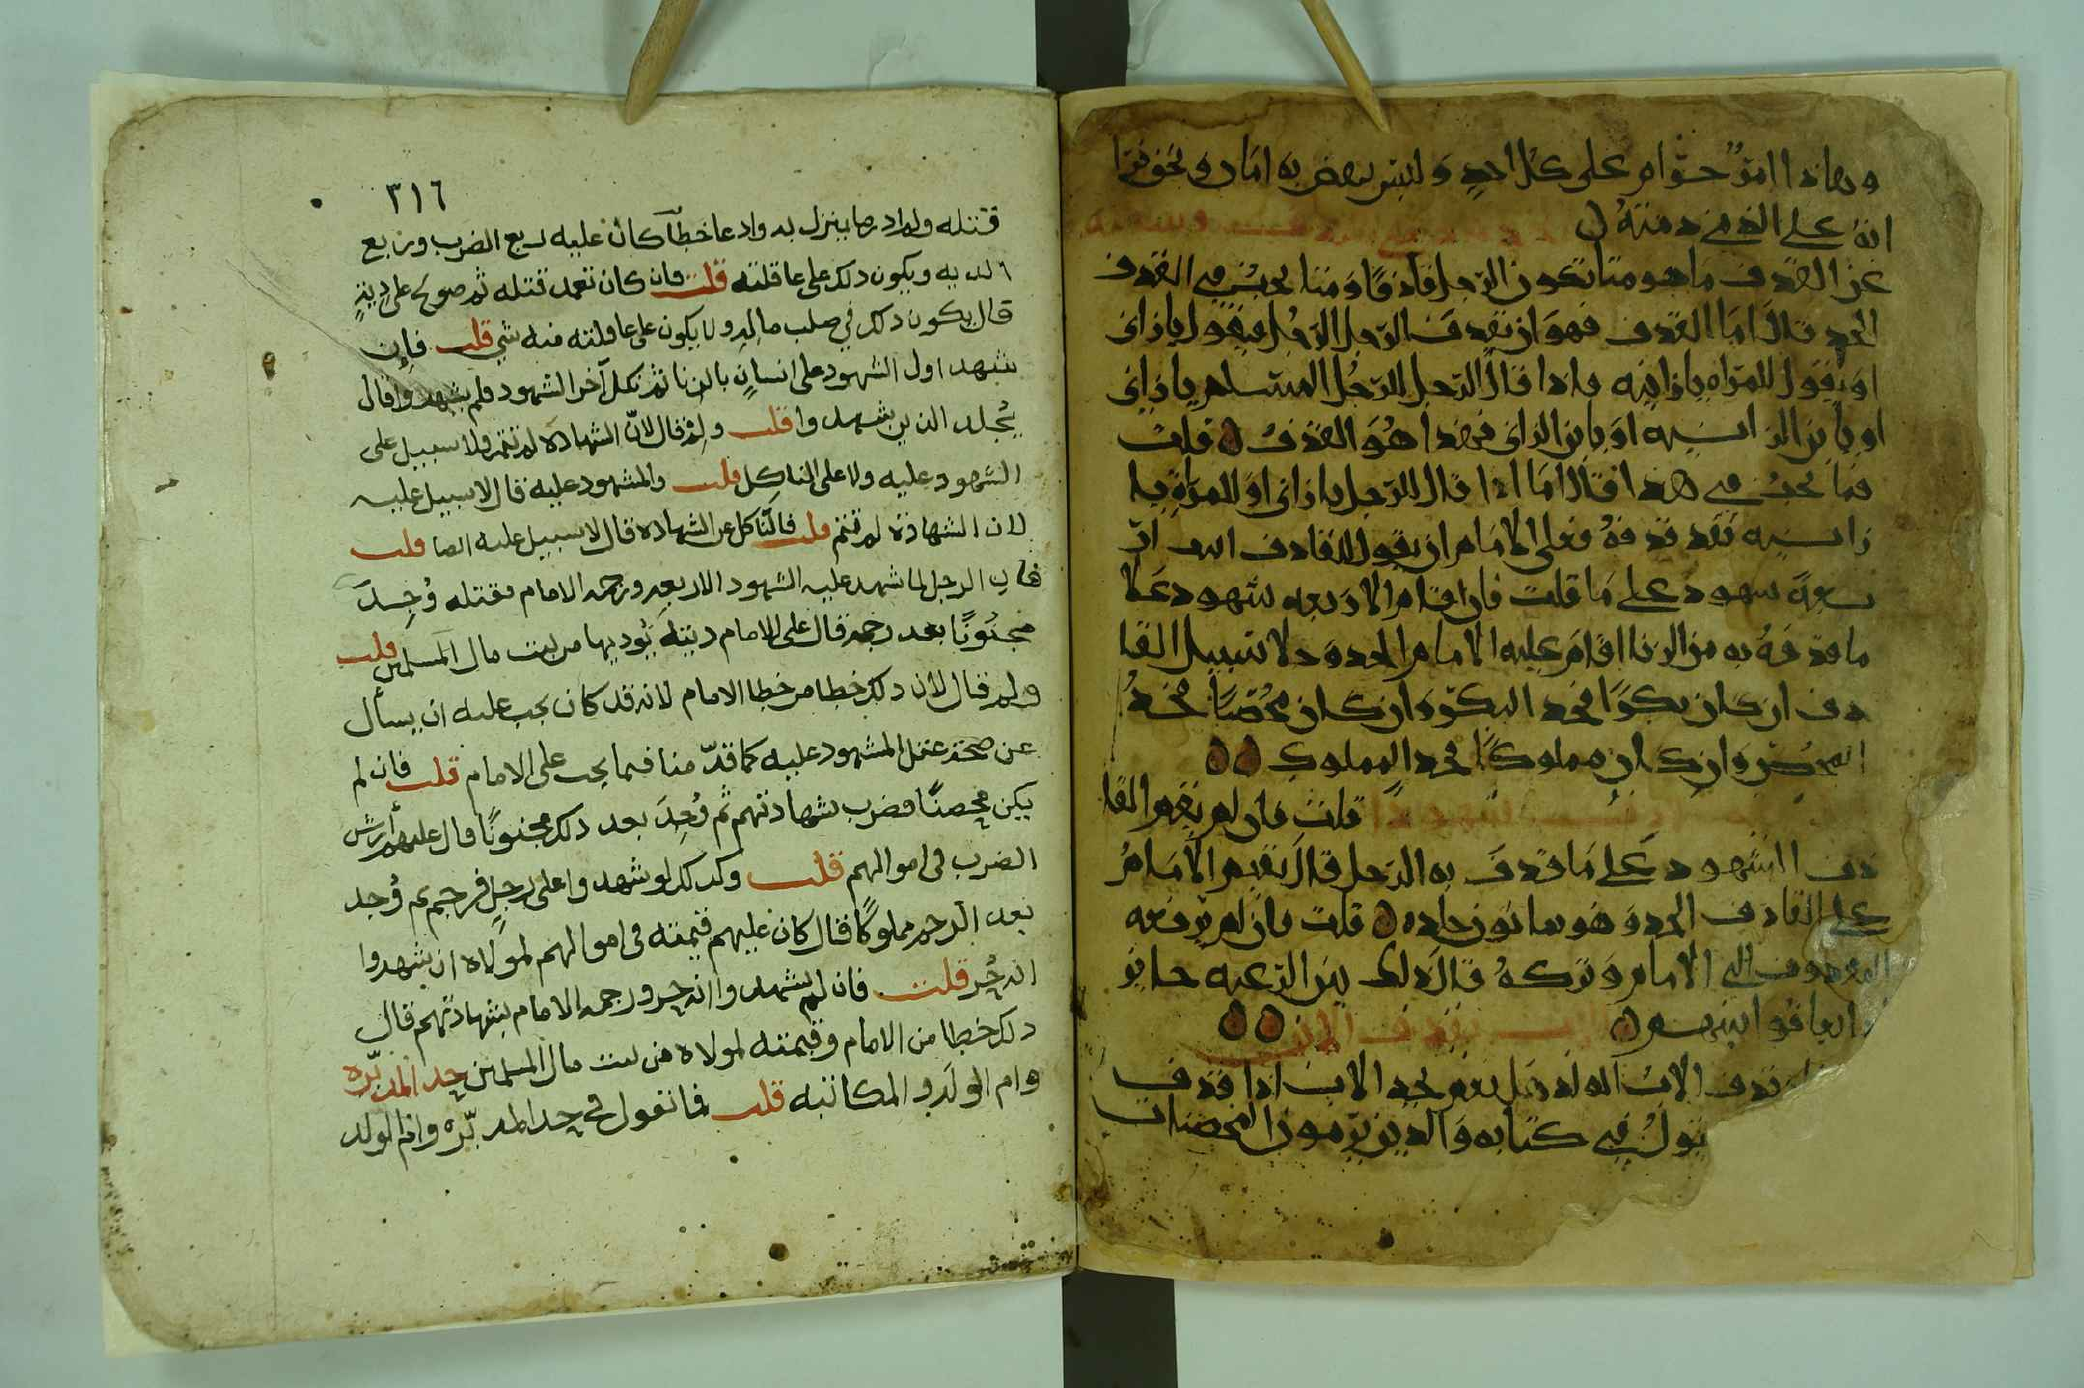 وهاذا امرٌ حرام على كل احدٍ وليس ينهض به امام ولا يحق فيما
انه على الذي ذمته ه
عن القذف ما هو متا يكون الرجل قاذفًا وما يجب في القذف
الحد قال اما القذف فهو ان يقذف الرجل الرجل فيقول يا زاني
او يقول للمراه يا زانيه واذا قال الرجل للرجل المسلم يا زاني
او يا بن الزانيه او يا بن الزاني فهذا هو القذف ه قلت
فما يجب في هذا فقال اما اذا قال للرجل يا زاني او للمراة يا
زانيه فقد قذفه فعلى الامام ان يقول للقاذف ايت ار
بعة شهود على ما قلت فان اقام الاربعه شهود على
ما قذفه به من الزنا اقام عليه الامام الحد ولا سبيل القا
ذف ان كان بكرًا فحد البكر وان كان محصنًا فحد
المحصن وان كان مملوكًا فحد المملوك ه ه
قلت فان لم يقم القا
ذف الشهود على ما قذف به الرجل قال يقيم الامام
على القاذف الحد وهو ثمانون جلده ه قلت فان لم يرفعه
المقذوف الى الامام وتركه قال ذلك بين الرعيه جايز
اذا تعافوا بينهم ه يقذف الابن ه ه
قذف الاب الولد هل يقع حد الاب اذا قذف
يقول في كتابه والذين يرمون المحصنات
٣١٦
قتله ولم ادر ما ينزل به وادعا خطاً كان عليه ربع الضرب وربع
الديه ويكون ذلك على عاقلته قلت فان كان تعمد قتله ثم صولح على ديةٍ
قال يكون ذلك في صلب ماله ولا يكون على عاقلته منه شي قلت فان
شهد اول الشهود على انسانٍ بالزنا ثم نكل آخر الشهود فلم يشهدوا قال
يُجلد الذين شهدوا قلت ولم قال لانّ الشهاده لم تتم ولا سبيل على
الشهود عليه ولا على الناكِل قلت والمشهود عليه قال لا سبيل عليه
لان الشهادة لم تتم قلت فالنّاكل عن الشهاده قال لا سبيل عليه ايضا قلت
فان الرجل لما شهد عليه الشهود الاربعه ورجمه الامام فقتله وُجِدَ
مجنُونًا بعد رجمه قال على الامام ديته يُوديها من بيت مال المسلمين قلت
ولم قال لان ذلك خطا من خطا الامام لانه قد كان يجب عليه ان يسأل
عن صحة عقل المشهود عليه كما قدّمنا فيما يجب على الامام قلت فان لم
يكن محصنًا فضرب بشهادتهم ثم وُجِدَ بعد ذلك مجنونًا قال عليهم أرش
الضرب في اموالهم قلت وكذلك لو شهدوا على رجلٍ فرجم ثم وُجد
بعد الرجم مملوكًا قال كان عليهم قيمته في اموالهم لمولاه ان شهدوا
انه حُر قلت فان لم يشهدوا انه حر ورجمه الامام بشهادتهم قال
ذلك خطا من الامام وقيمته لمولاه من بيت مال المسلمين حد المدبّره
وام الولد والمكاتبه قلت فما تقول في حد المدبّره وام الولد